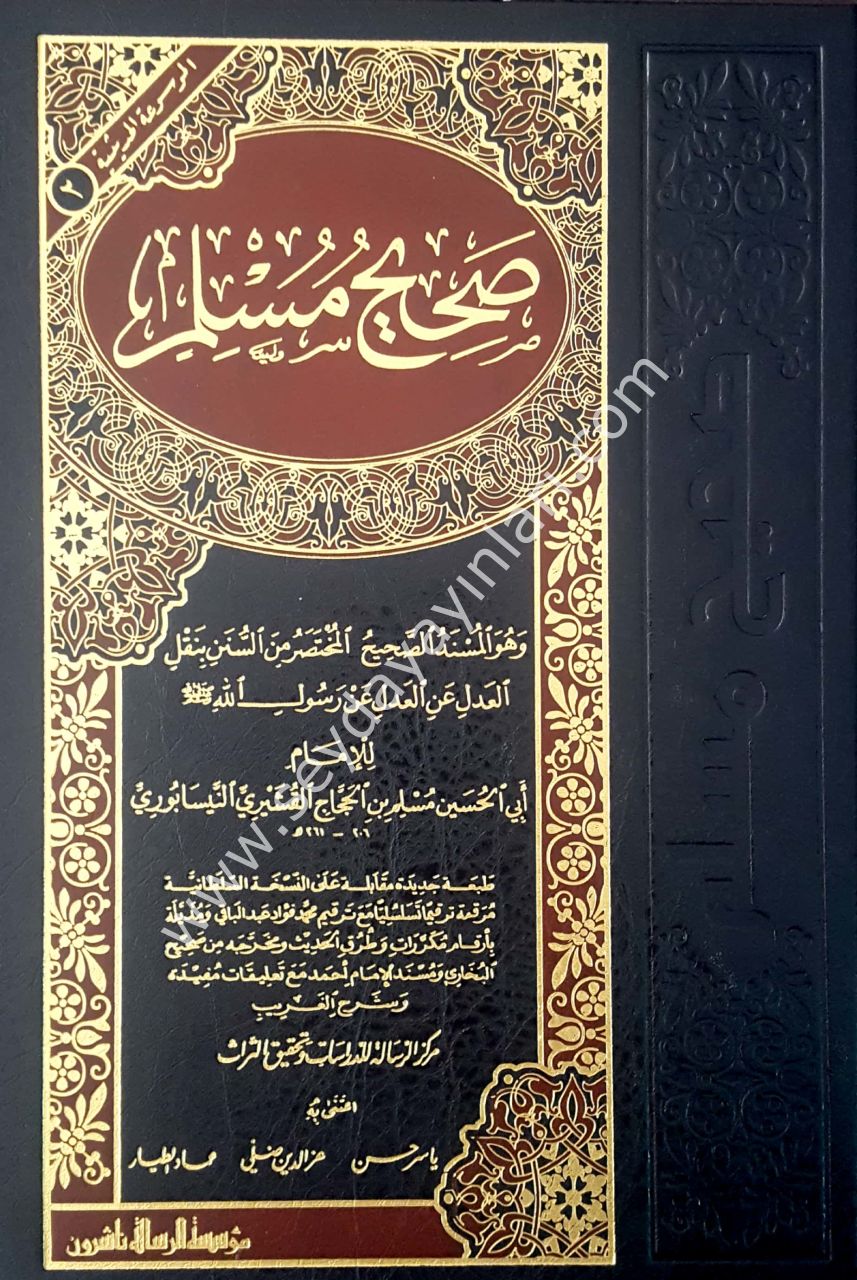 الموسوعة الحديثية
٢
صَحِيحُ مُسْلِم
وَهُوَ المُسْنَدُ الصَّحِيحُ المُخْتَصَرُ مِنَ السُّنَنِ بِنَقْلِ
العَدْلِ عَنِ العَدْلِ عَنْ رَسُولِ اللهِ ﷺ
لِلإِمَامِ
أَبِي الحُسَيْن مُسْلِم بن الحَجَّاج القُشَيْرِيِّ النَّيْسَابُورِيِّ
٢٠٦ - ٢٦١ هـ
طبعة جديدة مقابلة على النسخة السلطانية
مرقمة ترقيمًا تسلسليًا مع ترقيم محمد فؤاد عبد الباقي ومذيلة
بأرقام مكررات وطرق الحديث ومخرجه من صحيح
البخاري ومسند الإمام أحمد مع تعليقات مفيدة
وشرح الغريب
مركز الرسالة للدراسات وتحقيق التراث
اعتنى به
ياسر حسن عز الدين ضلي عماد الطيار
مؤسسة الرسالة ناشرون
صحيح مسلم
www.seydayayinlari.com